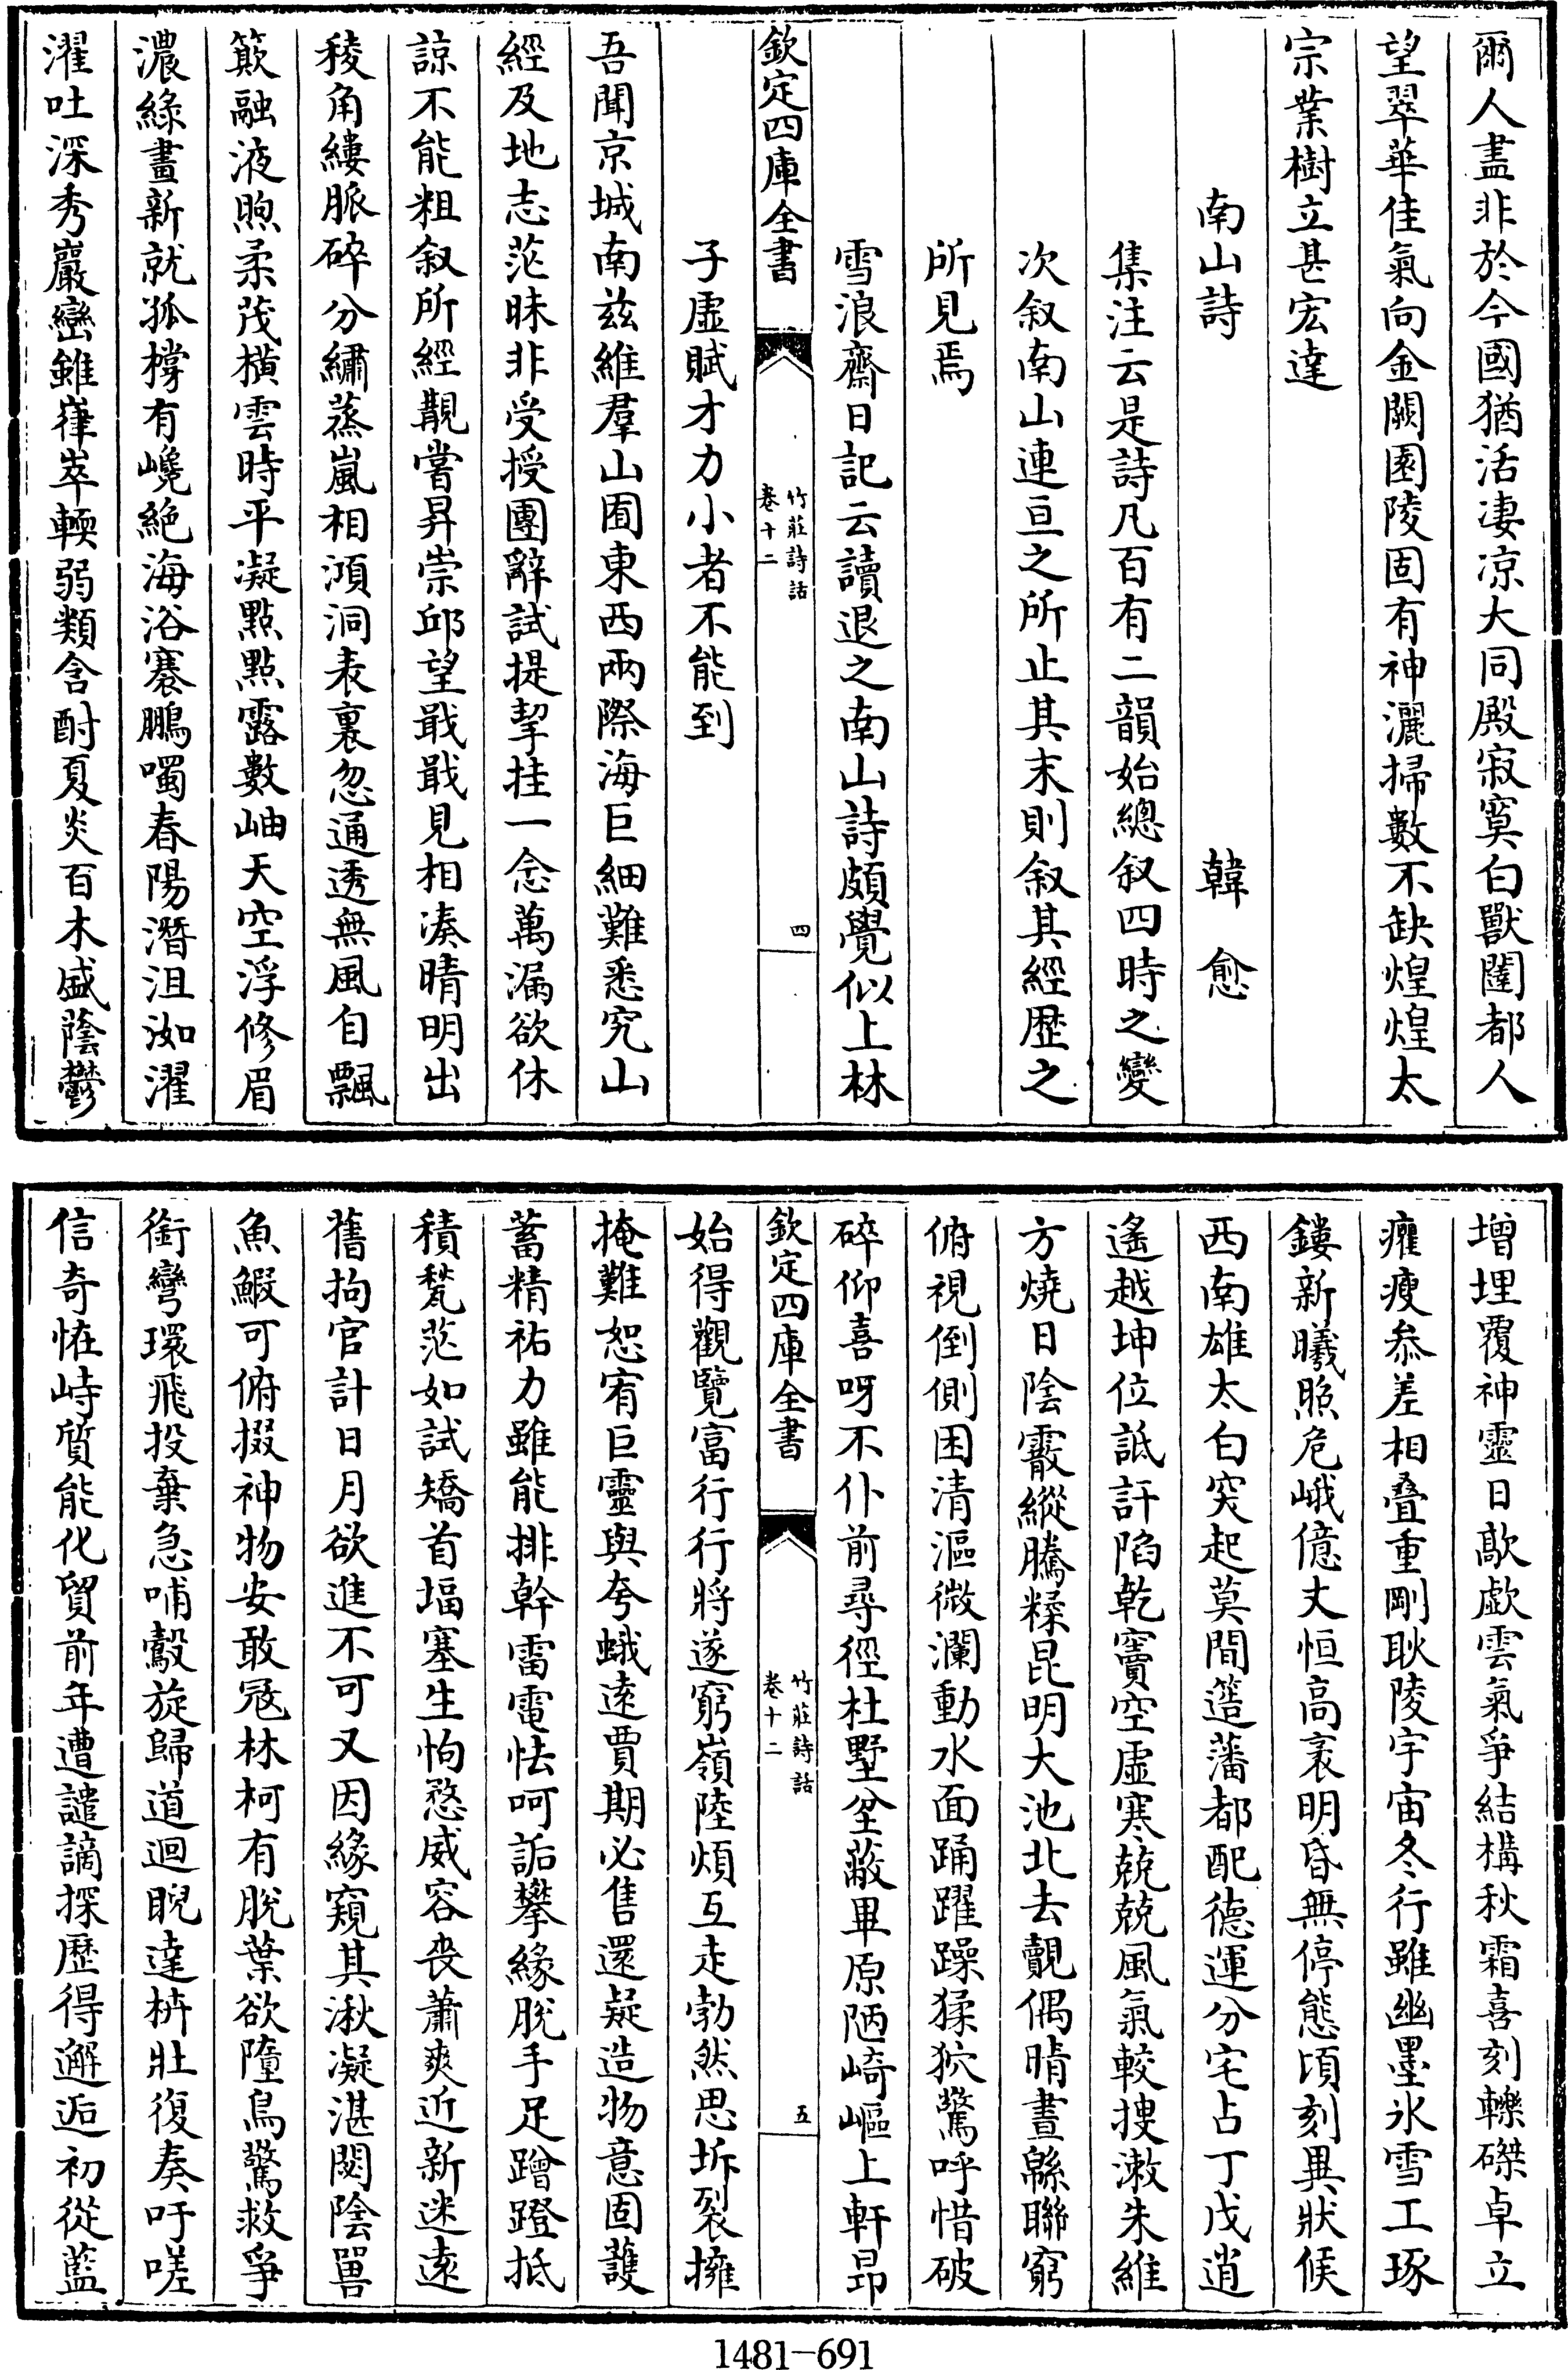 爾人盡非於今國猶活淒凉大同殿寂寞白獸闥都人
望翠華佳氣向金闕園陵固有神灑掃數不缺煌煌太
宗業樹立甚宏達
南山詩　韓　愈
集注云是詩凡百有二韻始總叙四時之變
次叙南山連亘之所止其末則叙其經歴之
所見焉
雪浪齋日記云讀退之南山詩頗覺似上林
欽定四庫全書
竹莊詩話
卷十二
四
子虛賦才力小者不能到
吾聞京城南兹維羣山囿東西兩際海巨細難悉究山
經及地志茫昧非受授團辭試提挈挂一念萬漏欲休
諒不能粗叙所經覯嘗昇崇邱望戢戢見相湊晴明出
稜角縷脈碎分繡蒸嵐相澒洞表裏忽通透無風自飄
簸融液煦柔茂橫雲時平凝點點露數岫天空浮修眉
濃綠畫新就孤撐有巉絶海浴褰鵬噣春陽潛沮洳濯
濯吐深秀巖巒雖嵂崒輭弱類含酎夏炎百木盛蔭鬱
增埋覆神靈日歊歔雲氣爭結構秋霜喜刻轢磔卓立
癯瘦叅差相叠重剛耿陵宇宙冬行雖幽墨氷雪工琢
鏤新曦照危峨億丈恒高袤明昏無停態頃刻異狀候
西南雄太白突起莫間簉藩都配德運分宅占丁戊逍
遙越坤位詆訐陷乾竇空虛寒兢兢風氣較搜漱朱維
方燒日陰霰縱騰糅昆明大池北去覿偶晴晝緜聯窮
俯視倒側困清漚微瀾動水面踊躍躁猱狖驚呼惜破
碎仰喜呀不仆前尋徑杜墅坌蔽畢原陋崎嶇上軒昻
欽定四庫全書
竹莊詩話
卷十二
五
始得觀覽富行行將遂窮嶺陸煩互走勃然思坼裂擁
掩難恕宥巨靈與夸蛾遠賈期必售還疑造物意固䕶
蓄精祐力雖能排幹雷電怯呵詬攀緣脫手足蹭蹬抵
積甃茫如試矯首堛塞生怐愗威容喪蕭爽近新迷遠
舊拘官計日月欲進不可又因緣窺其湫凝湛閟陰嘼
魚鰕可俯掇神物安敢冦林柯有脫葉欲墮鳥驚救爭
銜彎環飛投棄急哺鷇旋歸道迴睨達枿壯復奏吁嗟
信奇恠峙質能化貿前年遭譴謫探歴得邂逅初從藍
1481-691